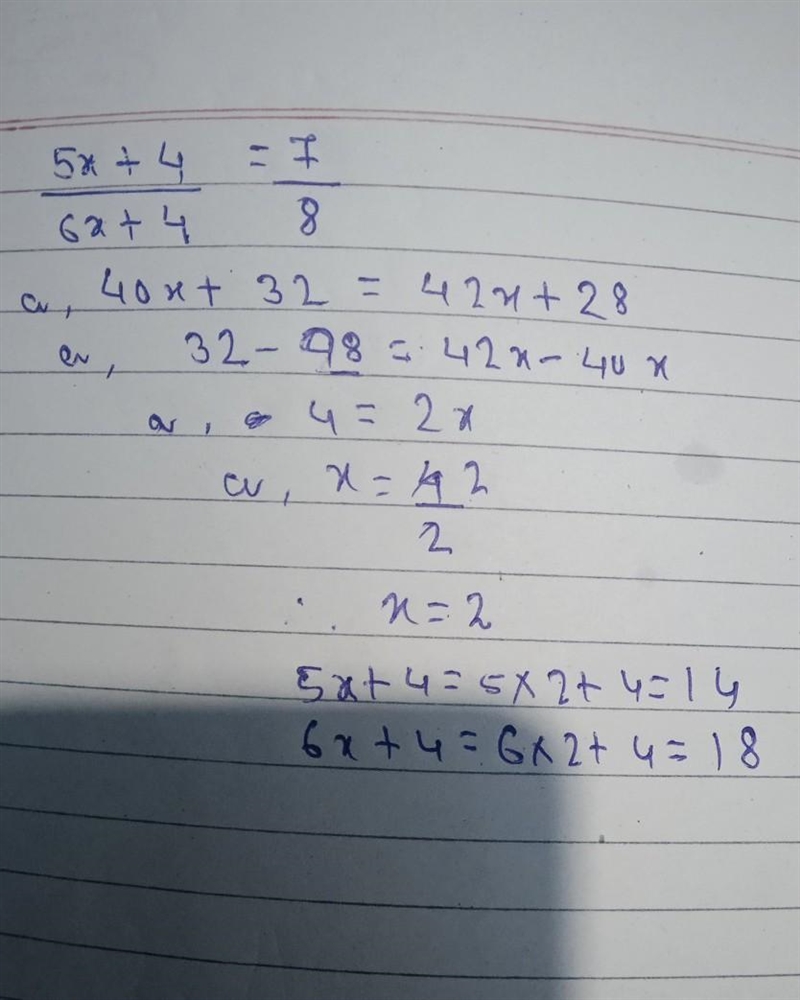 5x + 4 = 7
6x + 4 8
or, 40x + 32 = 42x + 28
or, 32 - 28 = 42x - 40x
or, 4 = 2x
or, x = 4 2
2
∴ x = 2
5x + 4 = 5 × 2 + 4 = 14
6x + 4 = 6 × 2 + 4 = 18